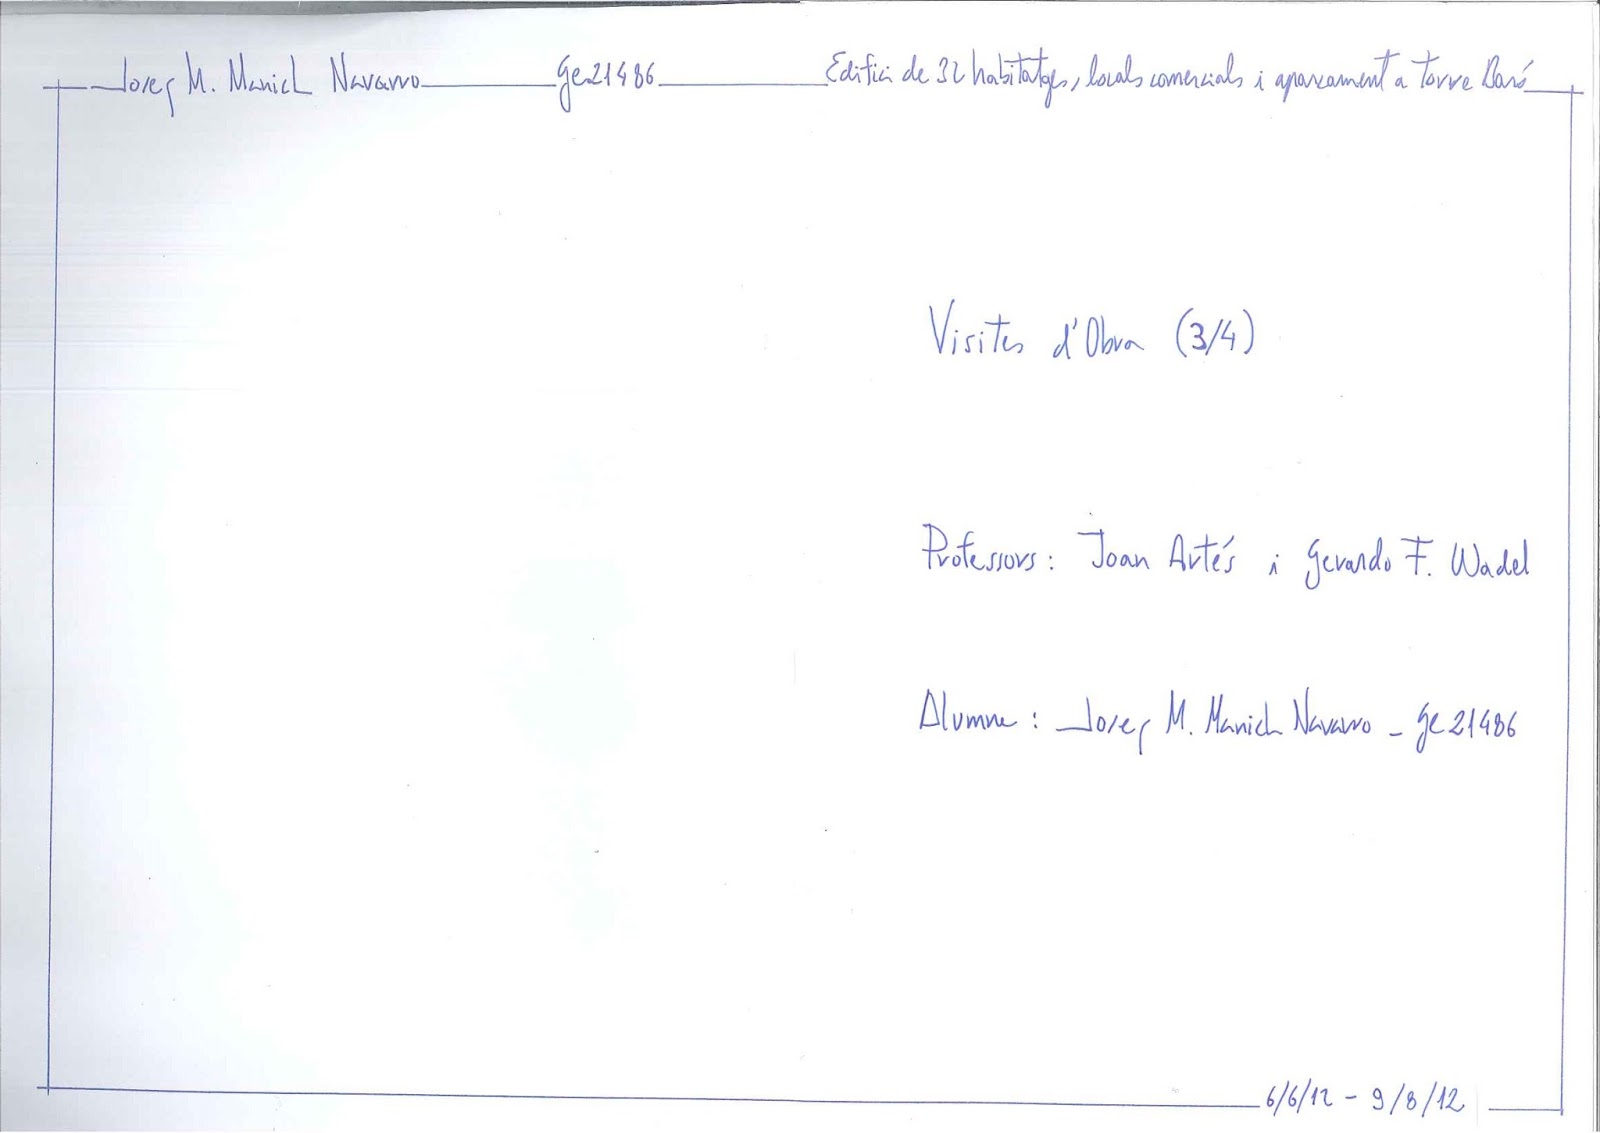 Josep M. Manich Navarro ge21486 Edifici de 32 habitatges, locals comercials i aparcament a Torre Baró
Visites d'Obra (3/4)
Professors: Joan Artés i Gerardo F. Wadel
Alumne: Josep M. Manich Navarro - ge21486
6/6/12 - 9/8/12